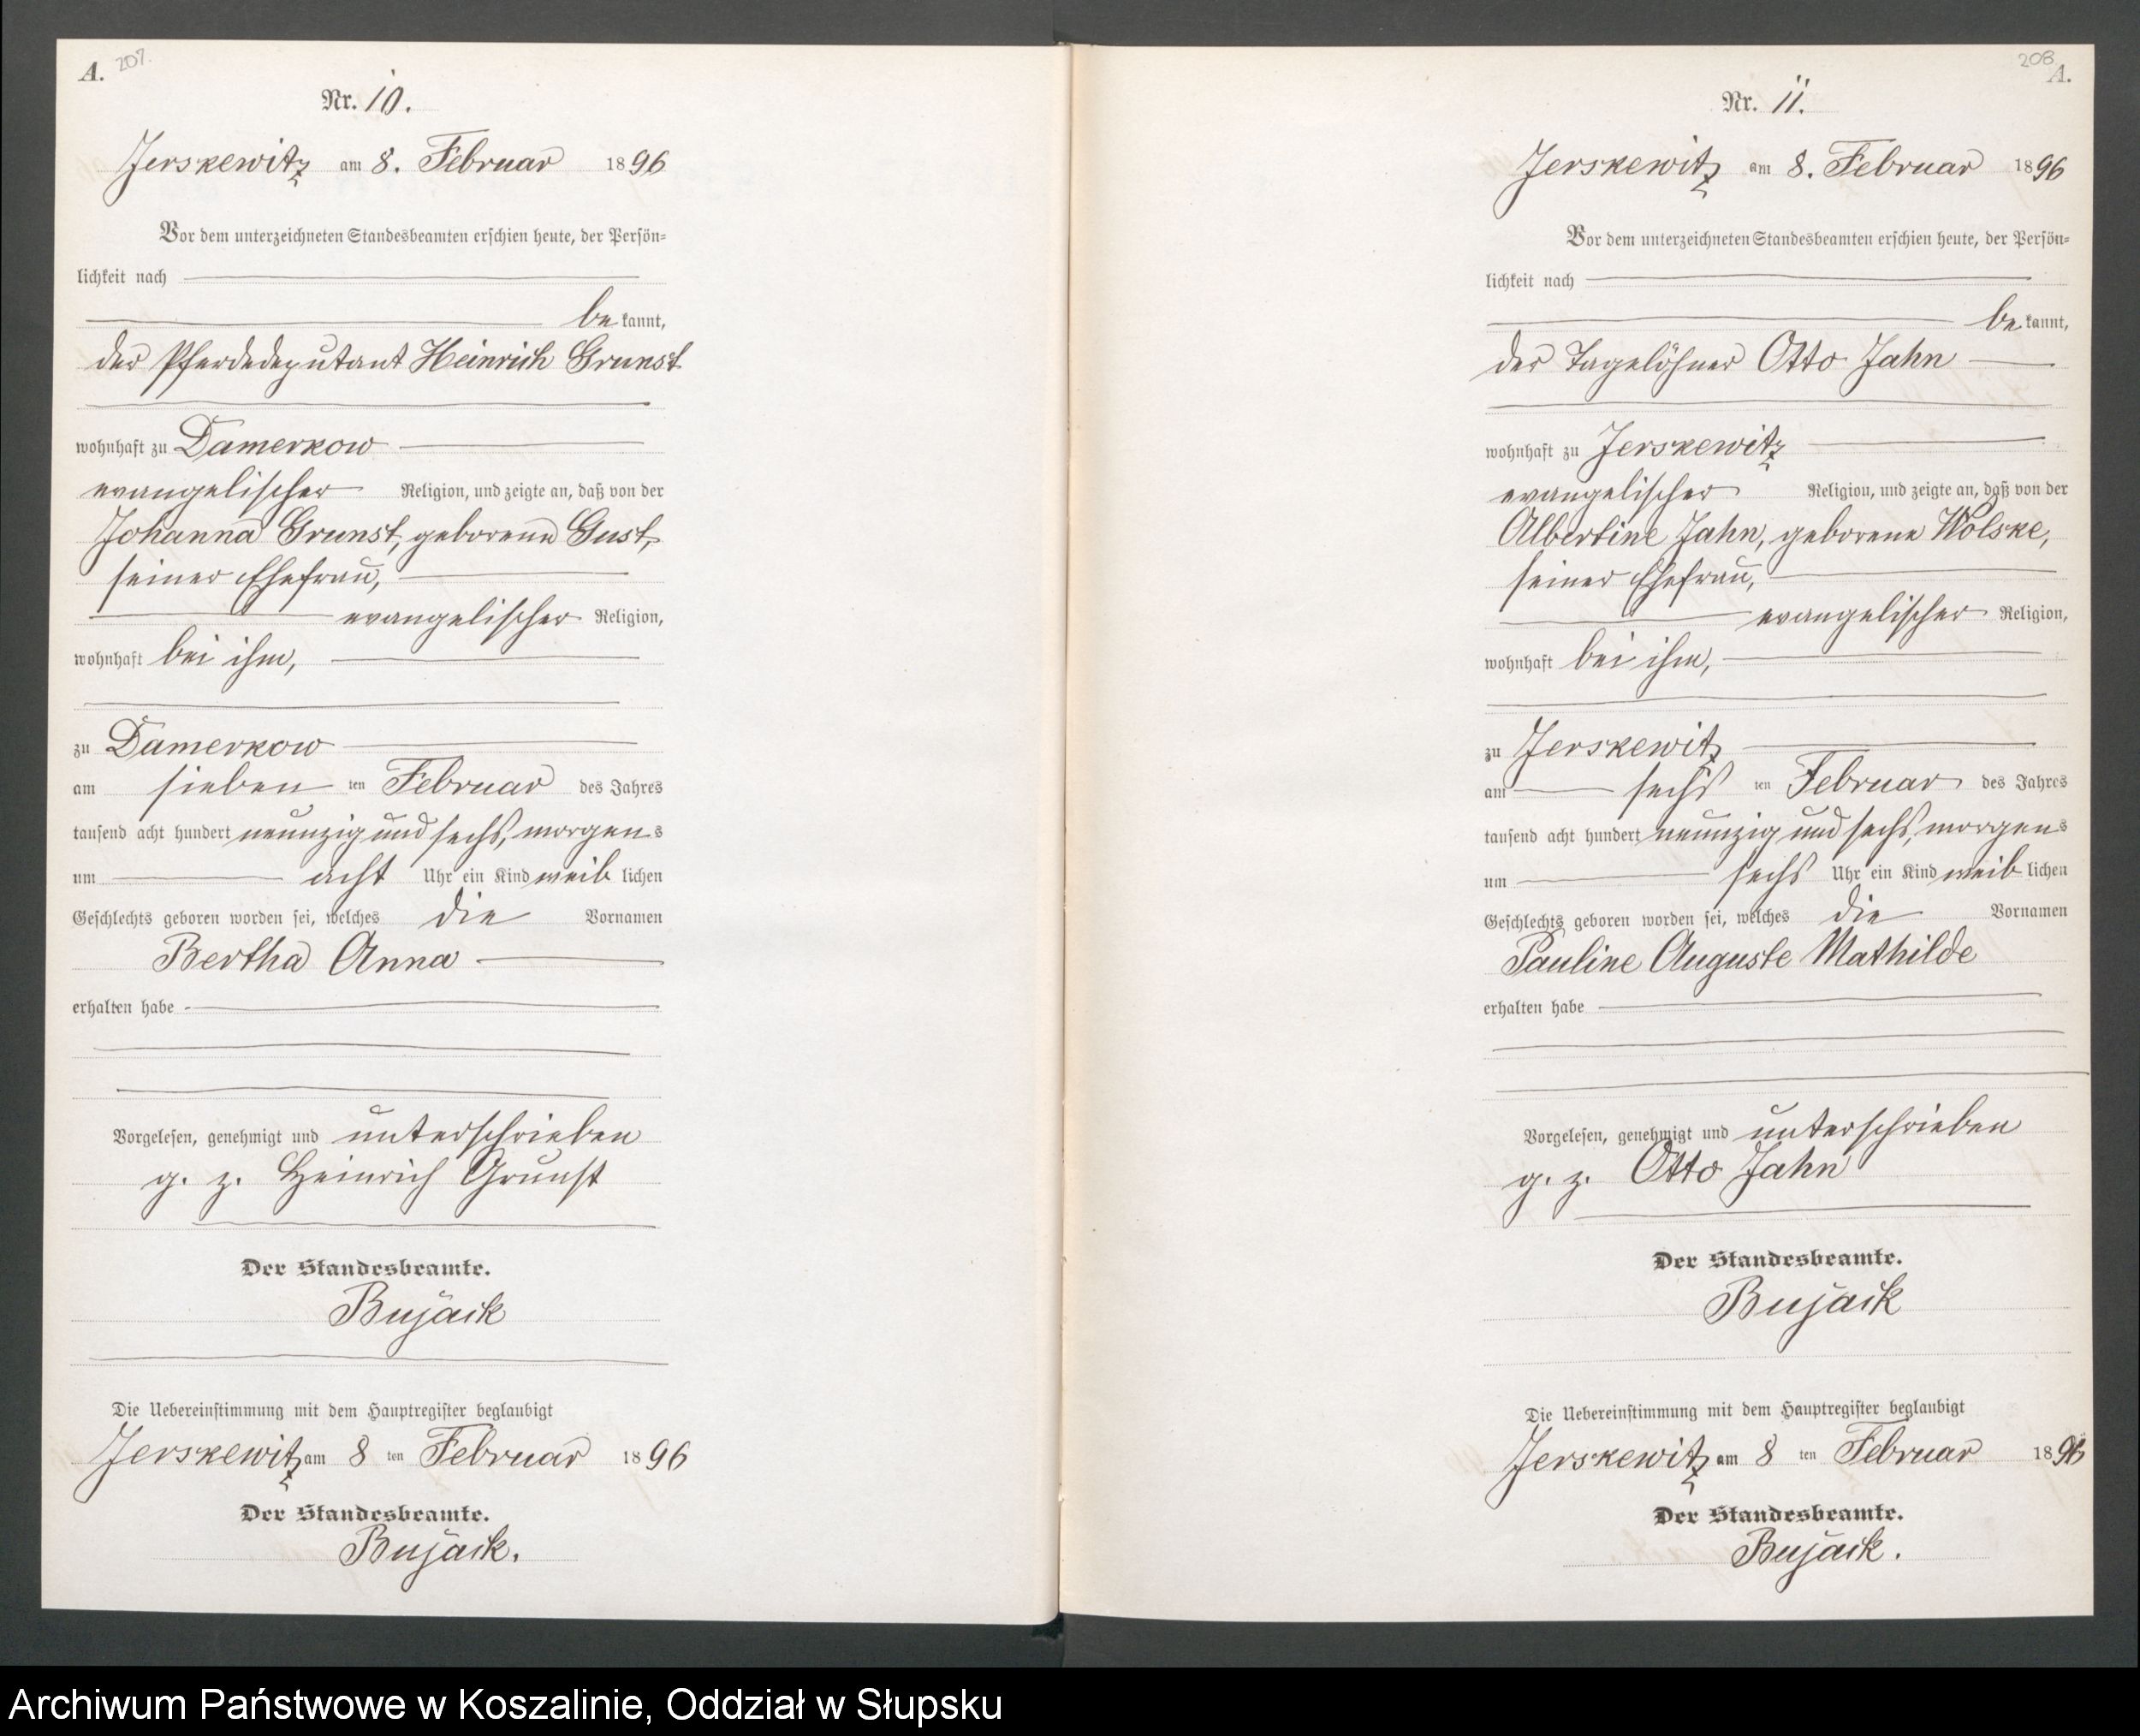 A. 207.
Nr. 10.
Jerskewitz am 8. Februar 1896
Vor dem unterzeichneten Standesbeamten erschien heute, der Persön-
lichkeit nach
be kannt,
der Pferdedeputant Heinrich Grunst
wohnhaft zu Damerkow
evangelischer Religion, und zeigte an, daß von der
Johanna Grunst, geborene Gust,
seiner Ehefrau,
evangelischer Religion,
wohnhaft bei ihm,
zu Damerkow
am sieben ten Februar des Jahres
tausend acht hundert neunzig und sechs, morgens
um acht Uhr ein Kind weib lichen
Geschlechts geboren worden sei, welches die Vornamen
Bertha Anna
erhalten habe
Vorgelesen, genehmigt und unterschrieben
g. z. Heinrich Grunst
Der Standesbeamte.
Bujack
Die Uebereinstimmung mit dem Hauptregister beglaubigt
Jerskewitz am 8 ten Februar 1896
Der Standesbeamte.
Bujack.
208 A.
Nr. 11.
Jerskewitz am 8. Februar 1896
Vor dem unterzeichneten Standesbeamten erschien heute, der Persön-
lichkeit nach
be kannt,
der Tagelöhner Otto Jahn
wohnhaft zu Jerskewitz
evangelischer Religion, und zeigte an, daß von der
Albertine Jahn, geborene Wolske,
seiner Ehefrau,
evangelischer Religion,
wohnhaft bei ihm,
zu Jerskewitz
am sechs ten Februar des Jahres
tausend acht hundert neunzig und sechs, morgens
um sechs Uhr ein Kind weib lichen
Geschlechts geboren worden sei, welches die Vornamen
Pauline Auguste Mathilde
erhalten habe
Vorgelesen, genehmigt und unterschrieben
g. z. Otto Jahn
Der Standesbeamte.
Bujack
Die Uebereinstimmung mit dem Hauptregister beglaubigt
Jerskewitz am 8 ten Februar 1896
Der Standesbeamte.
Bujack.
Archiwum Państwowe w Koszalinie, Oddział w Słupsku